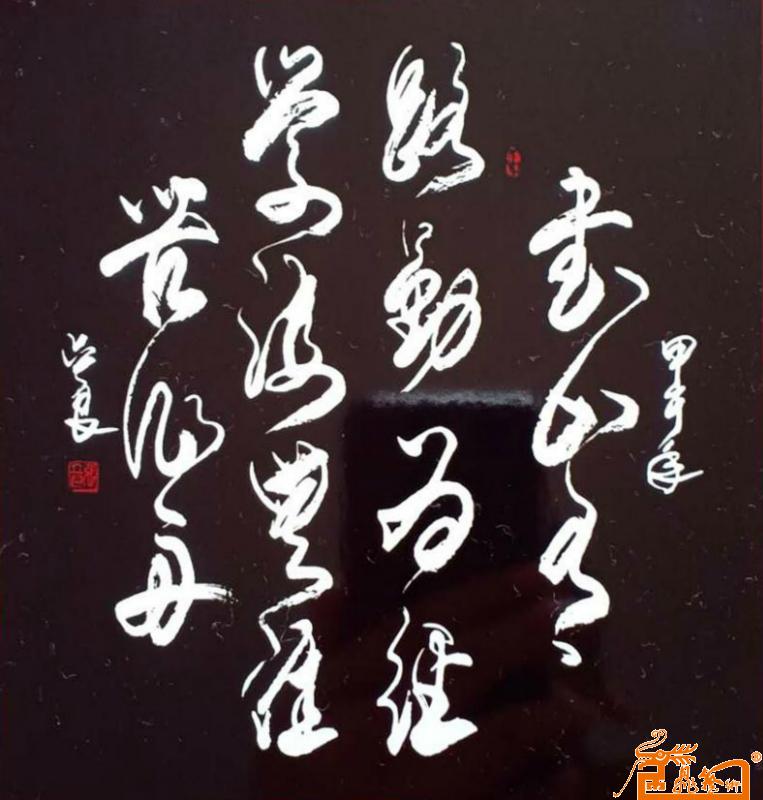 甲午年
书山有
路勤为径
学海无涯
苦作舟